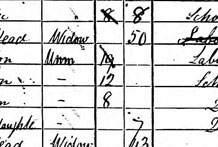 8 8 Scho
Head Widow 50
on Unm 19 Lab
on - 12 Sch
on - 8
daught - 7
ead Widow 43